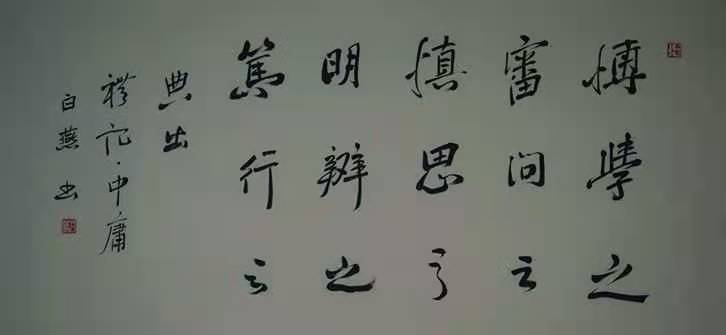 博學之
審問之
慎思之
明辨之
篤行之
典出
禮記·中庸
白燕书